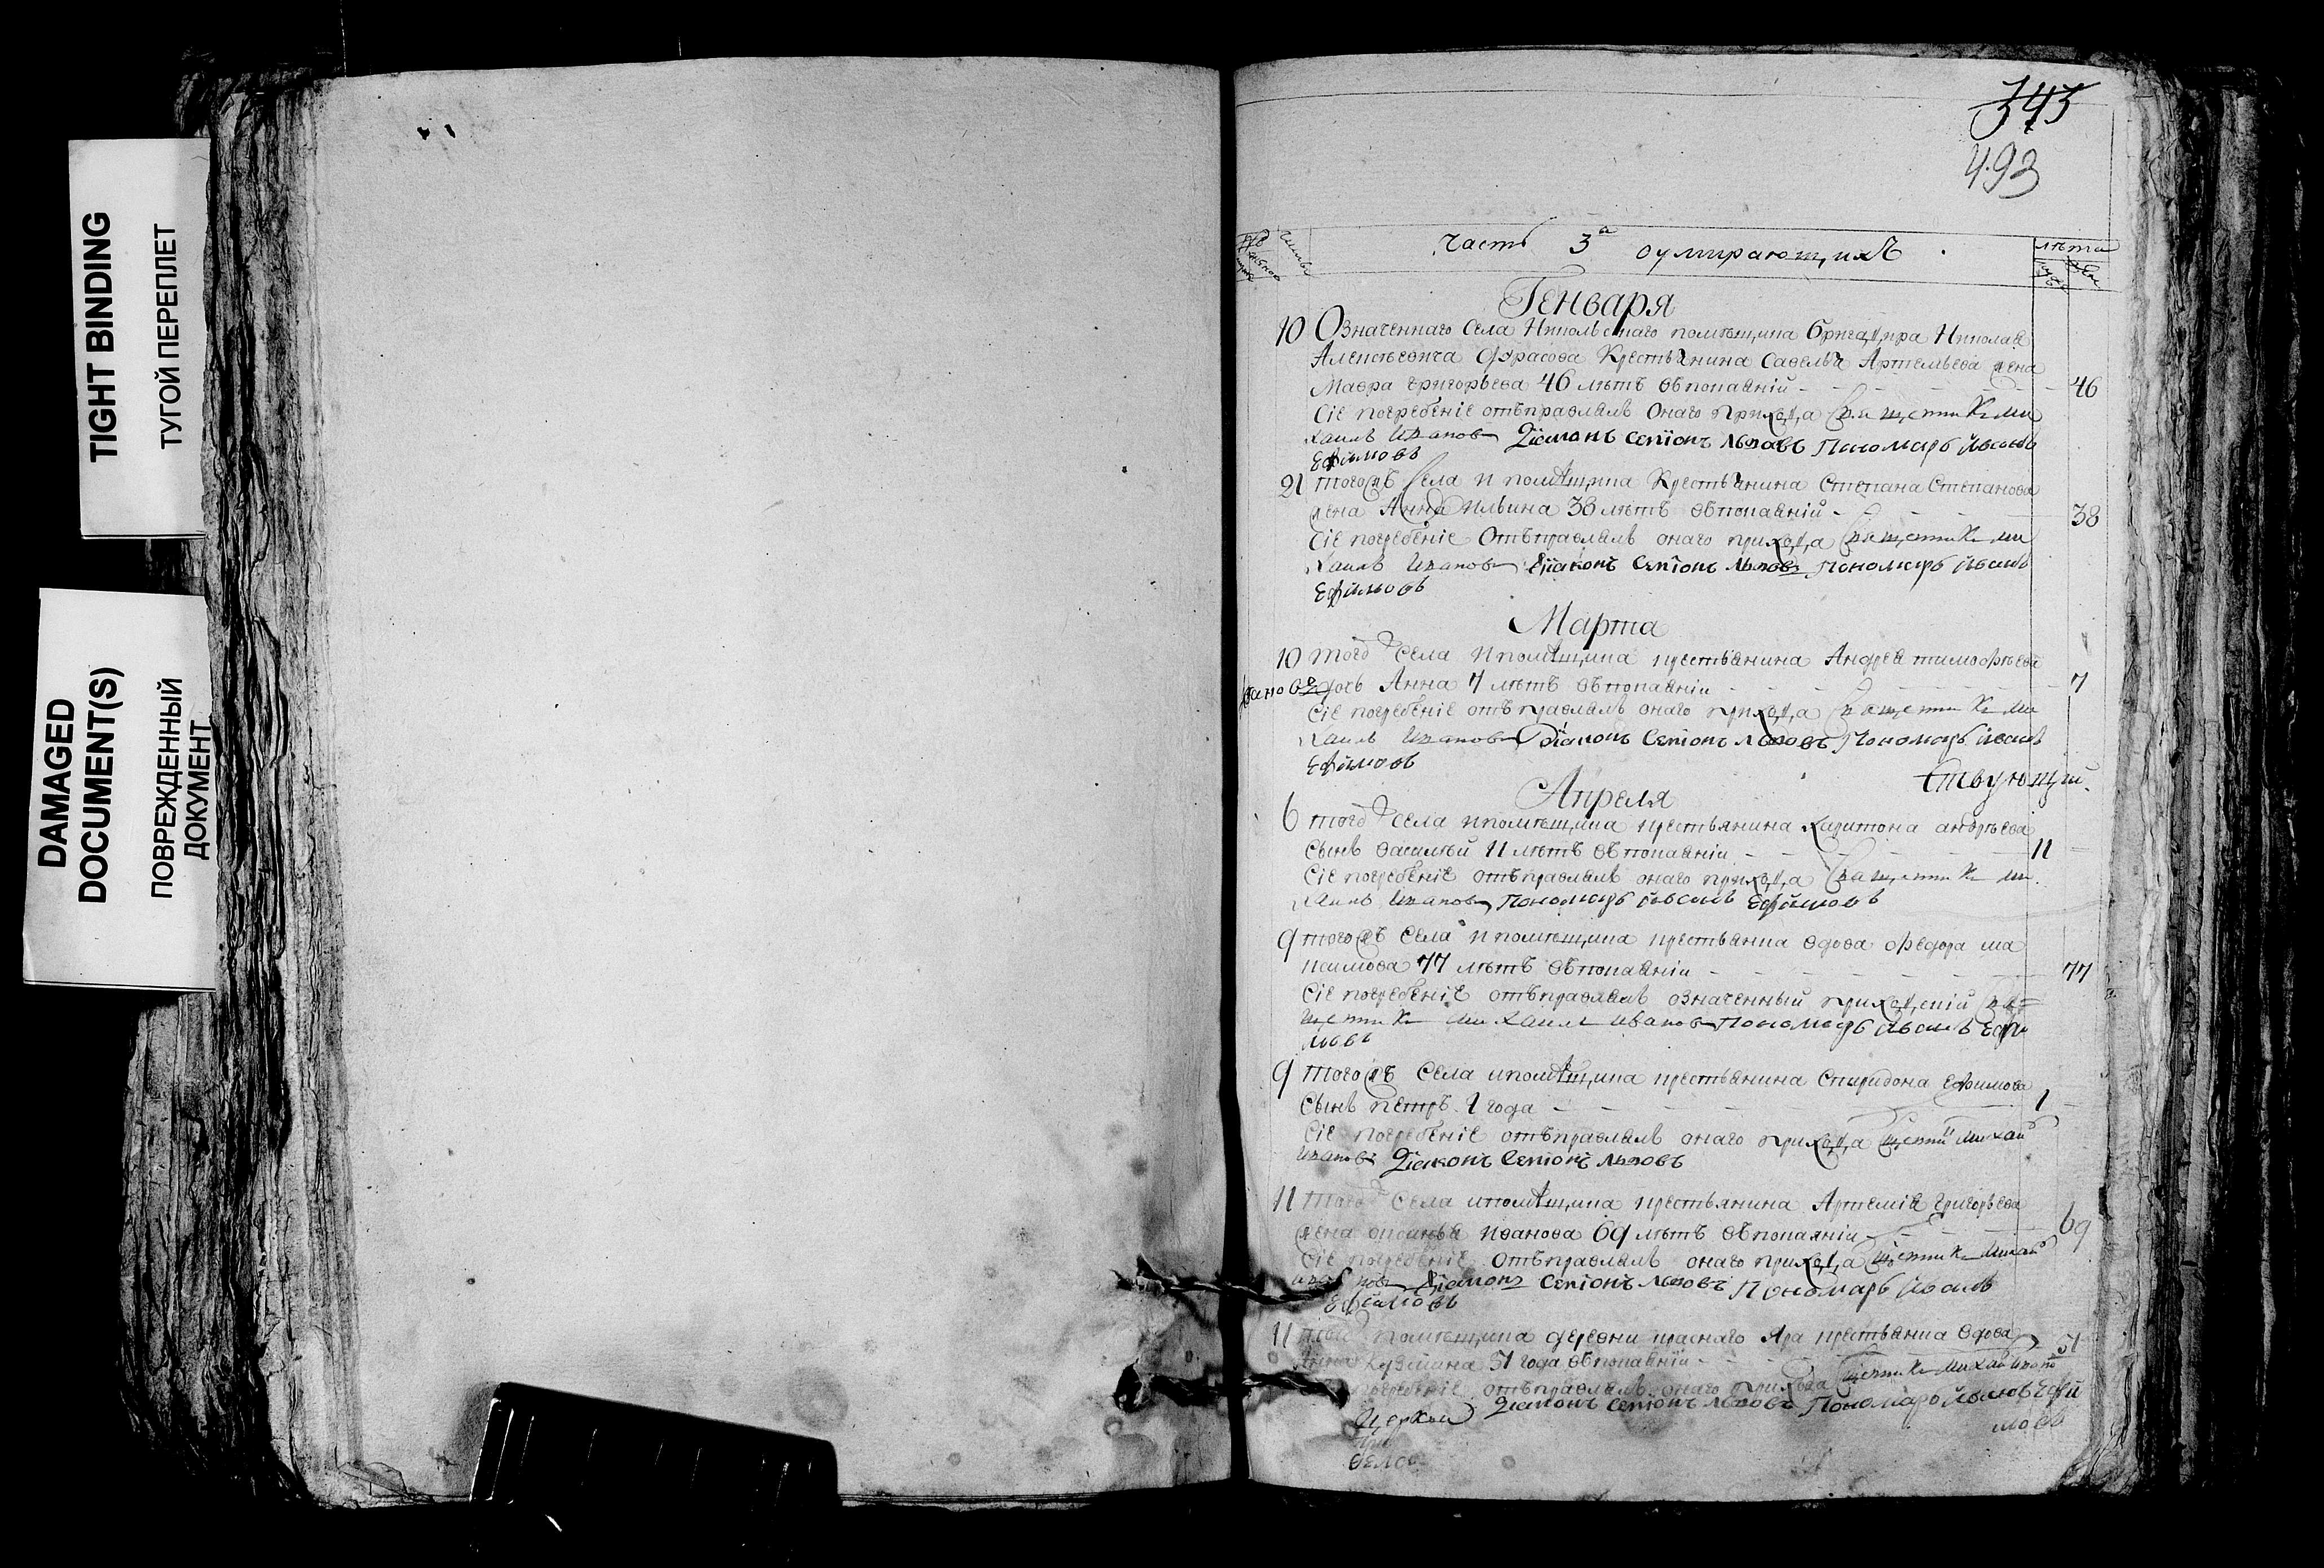 TIGHT BINDING
ТУГОЙ ПЕРЕПЛЕТ
DAMAGED
DOCUMENT(S)
ПОВРЕЖДЕННЫЙ
ДОКУМЕНТ
343
493
часть 3а оумирающихъ
лѣта
Генваря
10 Означеннаго села Никольскаго помѣщика бригадира Николая
Алексѣевича Фурасова крестьянина Савелья Артемьева жена
Мавра григорьева 46 лѣтъ въ покаянїи 46
сїе погребенїе отъправлялъ онаго прихода священникъ ми
хаилъ Ивановъ Дїаконъ Семїонъ Львовъ Пономарь Иванъ
Ефимовъ
21 тогожъ села и помѣщика крестьянина Степана Степанова
жена Анна Ильина 38 лѣтъ въ покаянїи 38
сїе погребенїе отъправлялъ онаго прихода священникъ ми
хаилъ Ивановъ Дїаконъ Семїонъ Львовъ Пономарь Иванъ
Ефимовъ
Марта
10 того ж села и помѣщика крестьянина Андрея тимофѣева
дочь Анна 7 лѣтъ въ покаянїи 7
сїе погребенїе отъправлялъ онаго прихода священникъ ми
хаилъ Ивановъ Дїаконъ Семїонъ Львовъ Пономарь Иванъ
Ефимовъ
ствующей
Апреля
6 того ж села и помѣщика крестьянина харитона андрѣева
сынъ василей 11 лѣтъ въ покаянїи 11
сїе погребенїе отъправлялъ онаго прихода священникъ ми
хаилъ Ивановъ Пономарь Иванъ Ефимовъ
9 тогожъ села и помѣщика крестьянка вдова федора ма
ксимова 77 лѣтъ въ покаянїи 77
сїе погребенїе отъправлялъ означенный приходскїй свя=
щенникъ михаилъ ивановъ Пономарь Иванъ Ефи
мовъ
9 тогожъ села и помѣщика крестьянина Спиридона Ефимова
сынъ петръ 1 года 1
сїе погребенїе отъправлялъ онаго прихода михаи
Ивановъ Дїаконъ Семїонъ Львовъ
11 того ж села и помѣщика крестьянина Артемїя григорьева
жена Иванова 69 лѣтъ въ покаянїи 69
сїе погребенїе отъправлялъ онаго прихода михаи
Дїаконъ Семїонъ Львовъ Пономарь Иванъ
Ефимовъ
11 помѣщика деревни краснаго Яра крестьянка вдова
Анна кузмина 51 года въ покаянїи 51
погребенїе отъправлялъ онаго прихода михаи
Дїаконъ Семїонъ Львовъ Пономарь Иванъ Ефи
мовъ
Церкви